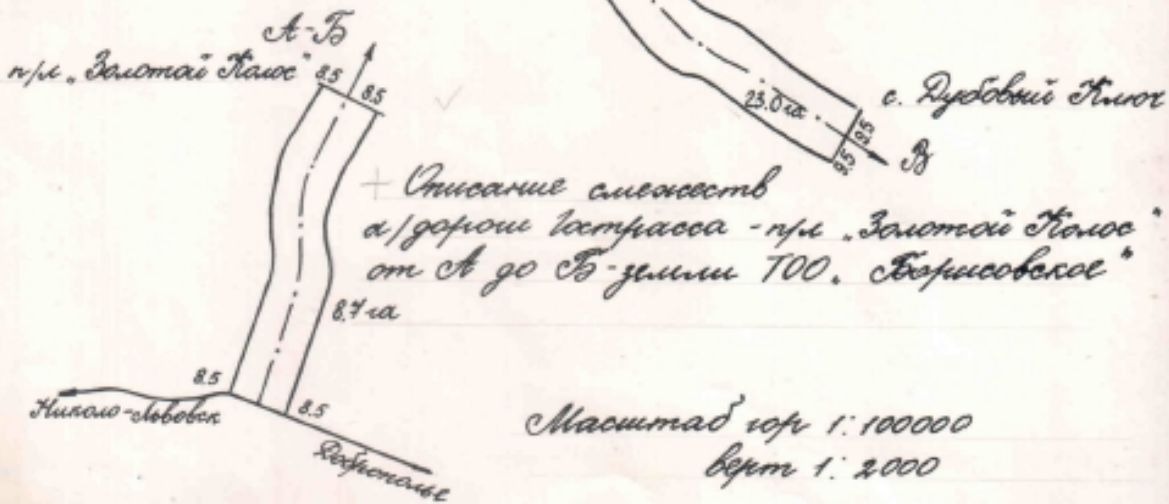 А-Б
п/л „Золотой Колос"
8.5
8.5
23.0 га
с. Дубовый Ключ
9.5
9.5
В
Описание смежеств
а/дороги Гострасса - п/л „Золотой Колос"
от А до Б - земли ТОО „Борисовское"
8.7 га
8.5
8.5
Николо-Львовск
Доброполье
Масштаб гор 1:100000
верт 1:2000